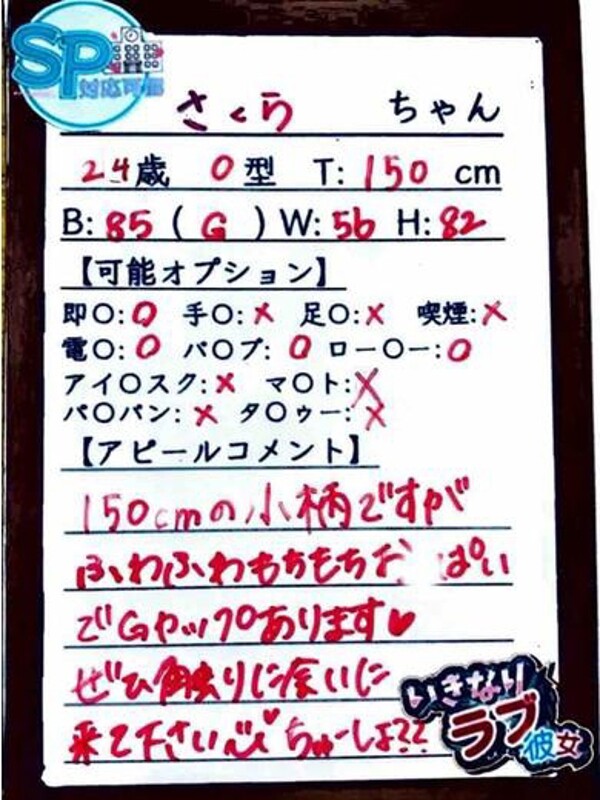 SP
対応可能
さくら ちゃん
24歳 O型 T: 150 cm
B: 85 ( G ) W: 56 H: 82
【可能オプション】
即〇: O 手〇: × 足〇: × 喫煙: ×
電〇: O バ〇ブ: O ロー〇ー: O
アイ〇スク: × マ〇ト: ×
パ〇パン: × タ〇ゥー: ×
【アピールコメント】
150cmの小柄ですが
ふわふわもちもちお ぱい
でGカップあります♥
ぜひ触りに会いに
来て下さい ちゅーしよ??
いきなり
ラブ
彼女